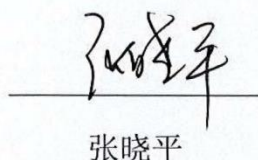 张晓平
张晓平